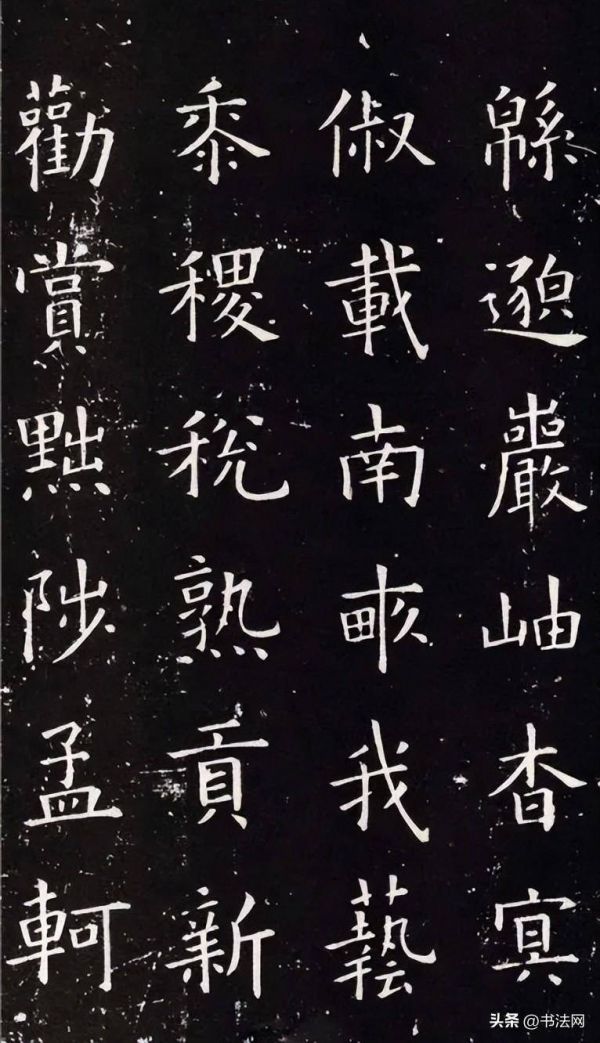 緜邈巖岫杳冥
俶載南畝我藝
黍稷稅熟貢新
勸賞黜陟孟軻
头条 @书法网